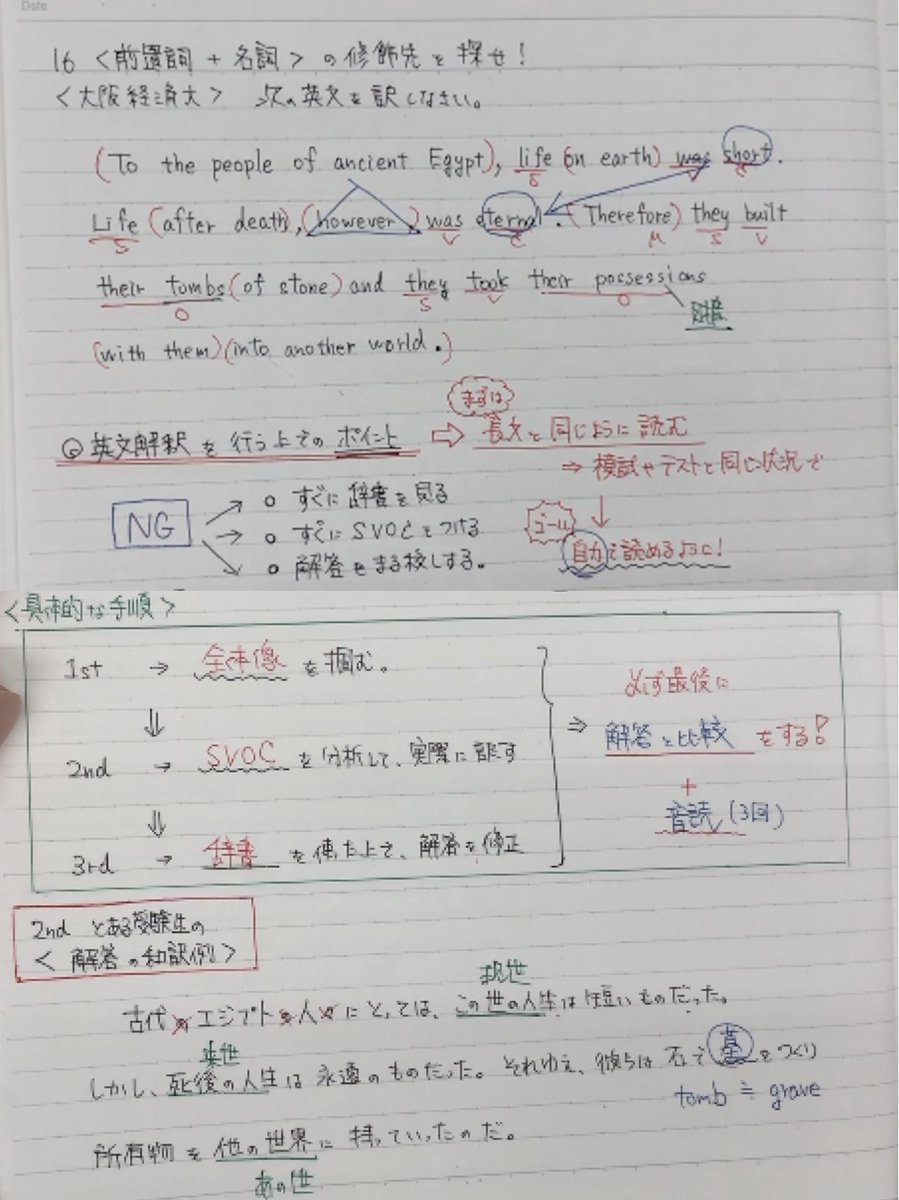 Date
16 <前置詞 + 名詞> の修飾先を探せ!
<大阪経済大> 次の英文を訳しなさい。
(To the people of ancient Egypt), life (on earth) was short.
S V C
Life (after death), (however) was eternal. (Therefore) they built
S V C M S V
their tombs (of stone) and they took their possessions
O S V O
財産
(with them) (into another world.)
まずは
◎ 英文解釈を行う上でのポイント ⇨ 長文と同じように読む
⇒ 模試やテストと同じ状況で
NG → ○ すぐに辞書を見る
→ ○ すぐにSVOCをつける
→ ○ 解答をまる移しする。
ゴール
自力で読めるように!
<具体的な手順>
1st → 全体像 を掴む。
2nd → SVOC を分析して、実際に訳す
3rd → 辞書 を使った上で、解答を修正
⇒ 必ず最後に
解答と比較 をする!
+
音読 (3回)
2nd とある受験生の
<解答の和訳例>
現世
古代のエジプトの人々にとっては、この世の人生は短いものだった。
来世
しかし、死後の人生は永遠のものだった。それゆえ、彼らは石で墓をつくり
tomb ≒ grave
所有物を他の世界に持っていったのだ。
あの世